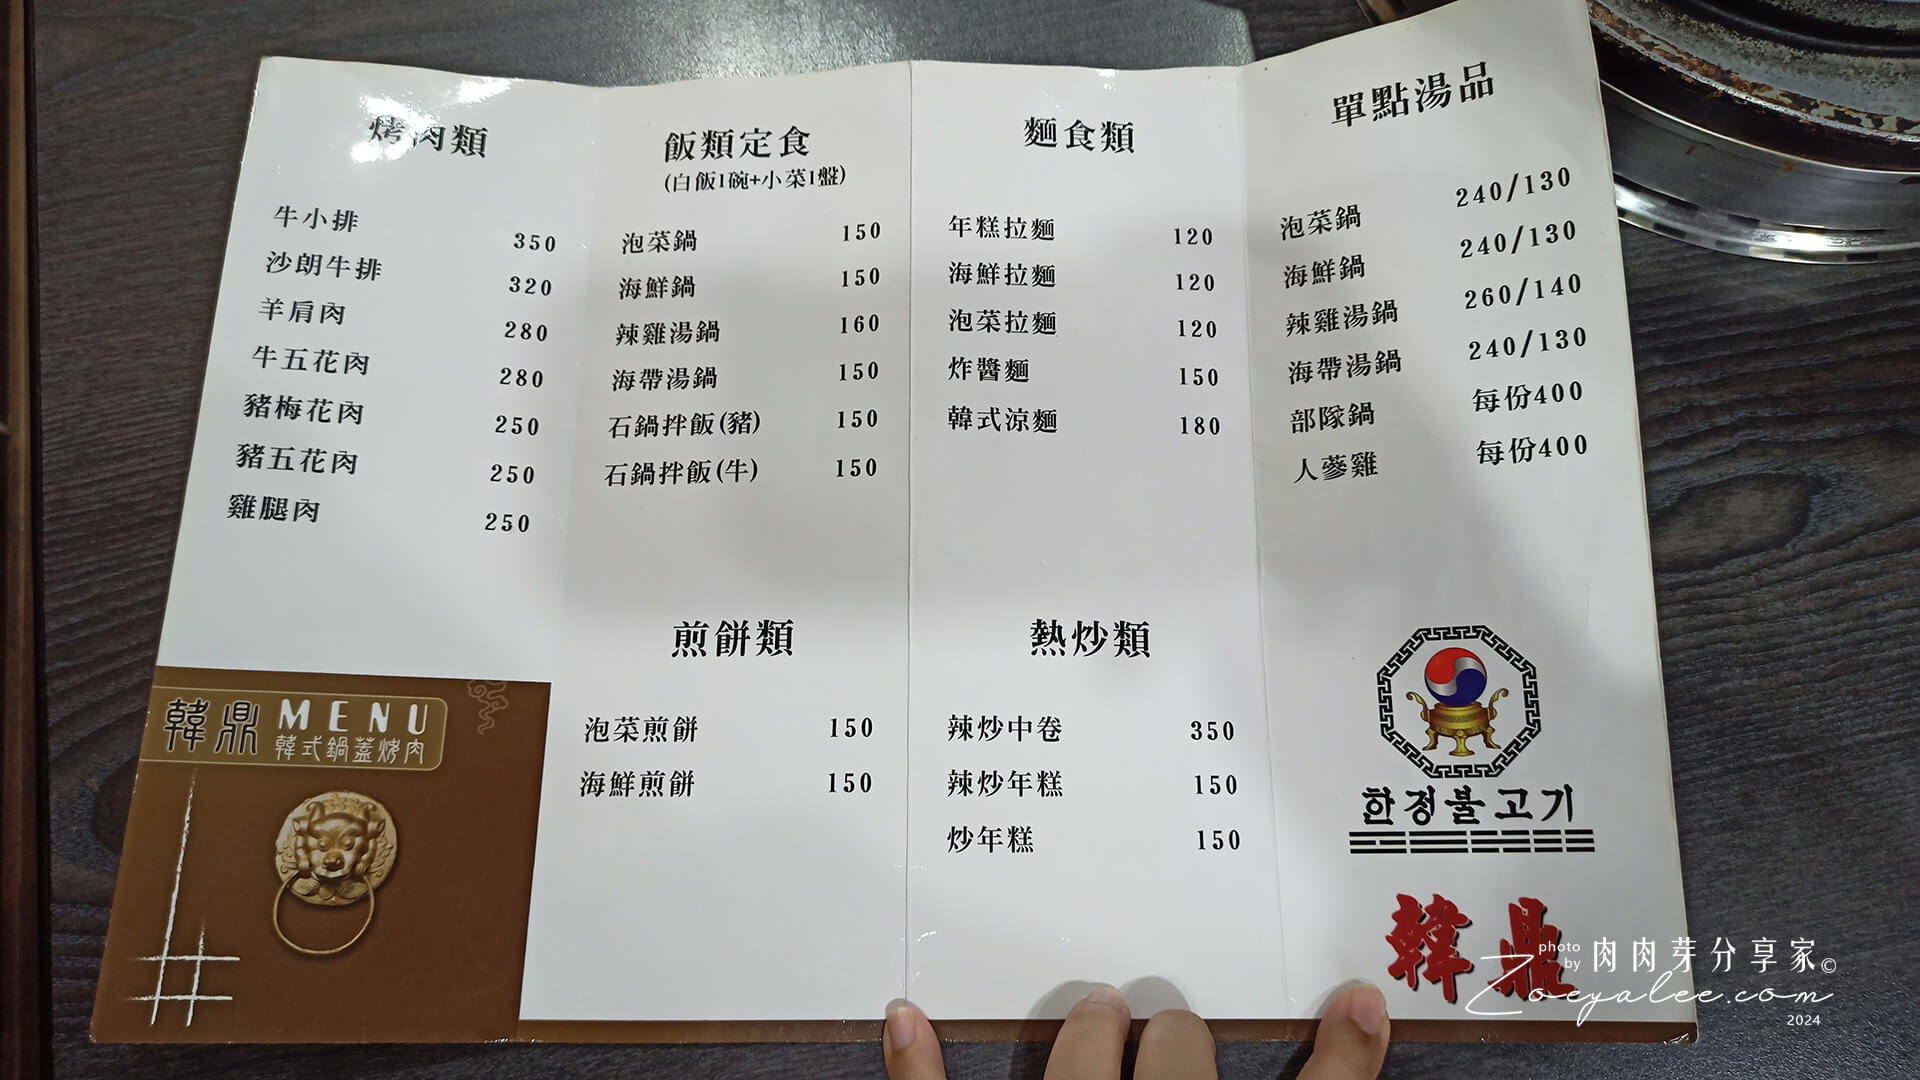 烤肉類
牛小排 350
沙朗牛排 320
羊肩肉 280
牛五花肉 280
豬梅花肉 250
豬五花肉 250
雞腿肉 250
韓鼎 MENU
韓式鍋蓋烤肉
飯類定食
(白飯1碗+小菜1盤)
泡菜鍋 150
海鮮鍋 150
辣雞湯鍋 160
海帶湯鍋 150
石鍋拌飯(豬) 150
石鍋拌飯(牛) 150
煎餅類
泡菜煎餅 150
海鮮煎餅 150
麵食類
年糕拉麵 120
海鮮拉麵 120
泡菜拉麵 120
炸醬麵 150
韓式涼麵 180
熱炒類
辣炒中卷 350
辣炒年糕 150
炒年糕 150
單點湯品
泡菜鍋 240/130
海鮮鍋 240/130
辣雞湯鍋 260/140
海帶湯鍋 240/130
部隊鍋 每份400
人蔘雞 每份400
한정불고기
韓鼎
photo by 肉肉芽分享家©
Zoeyalee.com
2024